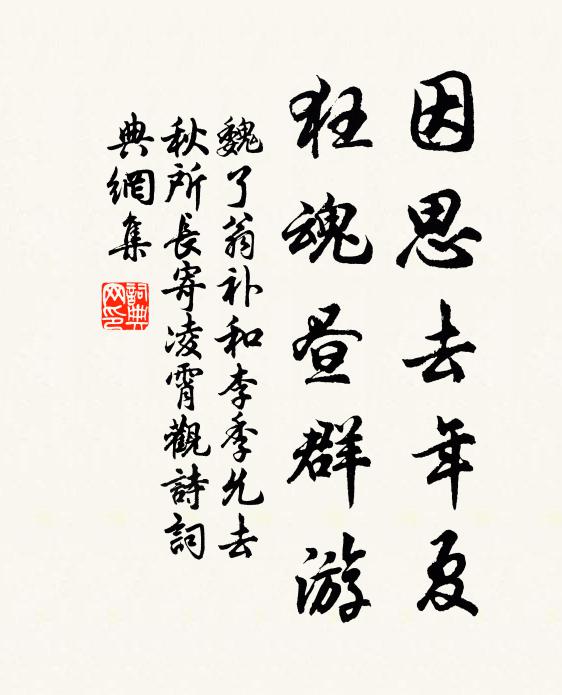 因思去年夏
狂魂昼群游
魏了翁补和李季允去
秋所長寄凌霄觀詩詞
典網集
詞典
网印